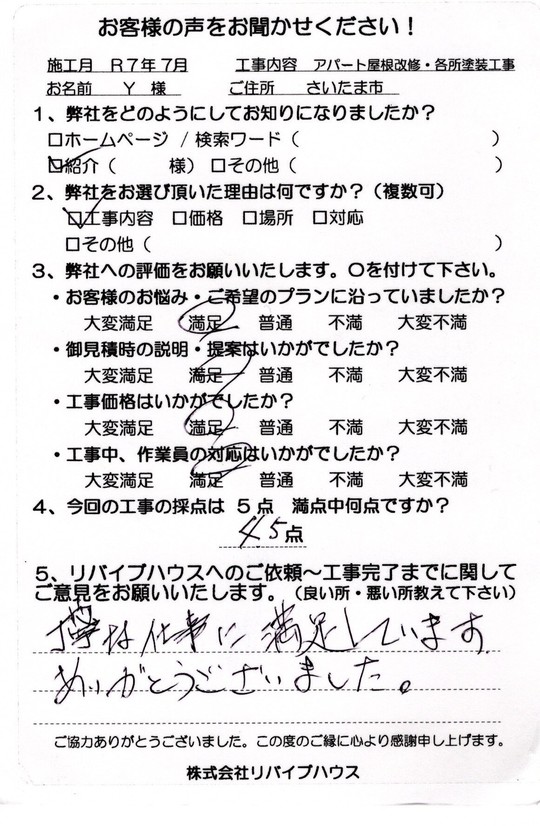 お客様の声をお聞かせください！
施工月 R7年7月 工事内容 アパート屋根改修・各所塗装工事
お名前 Y 様 ご住所 さいたま市
1、弊社をどのようにしてお知りになりましたか？
□ホームページ / 検索ワード（ ）
☑紹介（ 様）□その他（ ）
2、弊社をお選び頂いた理由は何ですか？（複数可）
☑工事内容 □価格 □場所 □対応
□その他（ ）
3、弊社への評価をお願いいたします。○を付けて下さい。
・お客様のお悩み・ご希望のプランに沿っていましたか？
大変満足 満足 普通 不満 大変不満
・御見積時の説明・提案はいかがでしたか？
大変満足 満足 普通 不満 大変不満
・工事価格はいかがでしたか？
大変満足 満足 普通 不満 大変不満
・工事中、作業員の対応はいかがでしたか？
大変満足 満足 普通 不満 大変不満
4、今回の工事の採点は 5点 満点中何点ですか？
4.5点
5、リバイブハウスへのご依頼～工事完了までに関して
ご意見をお願いいたします。（良い所・悪い所教えて下さい）
丁寧な仕事に満足しています
ありがとうございました。
ご協力ありがとうございました。この度のご縁に心より感謝申し上げます。
株式会社リバイブハウス